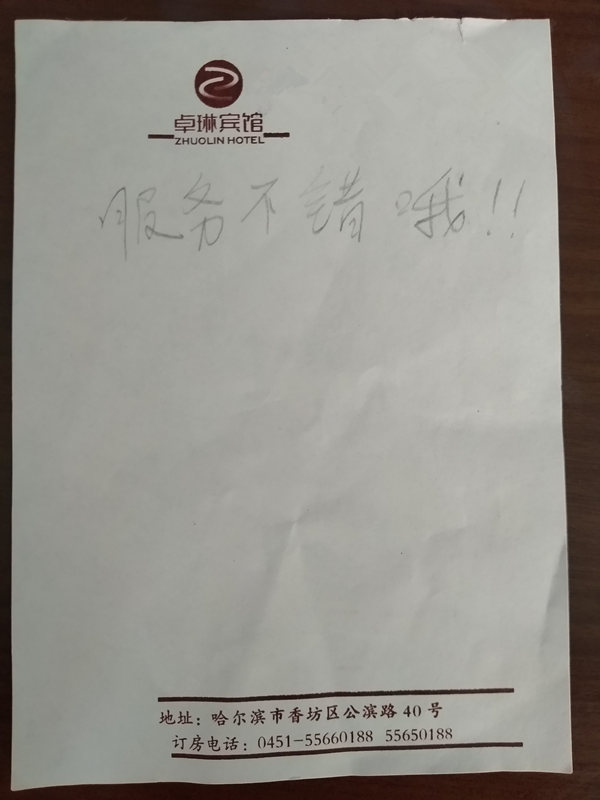 卓琳宾馆
ZHUOLIN HOTEL
服务不错哦!!
地址：哈尔滨市香坊区公滨路 40 号
订房电话：0451-55660188 55650188